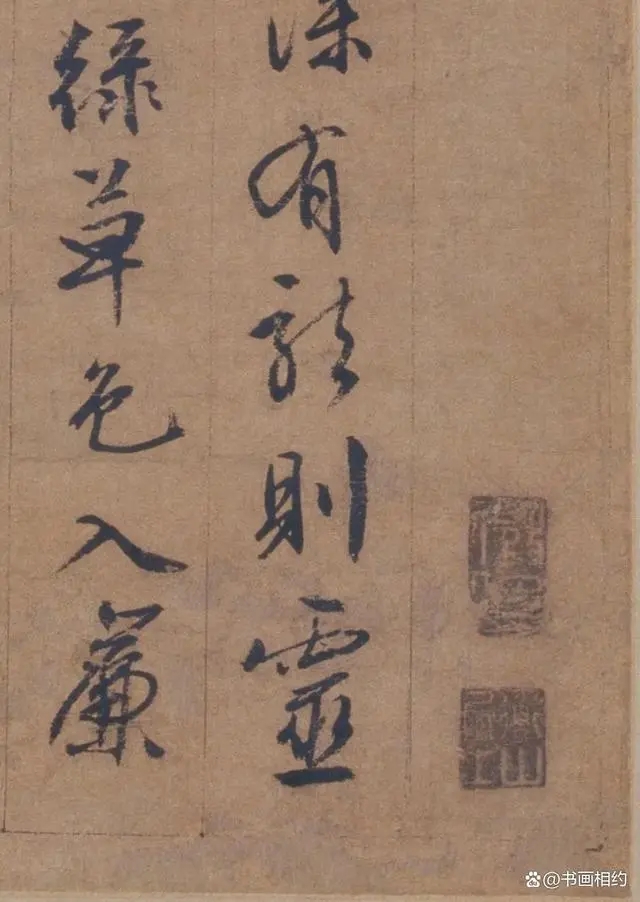 深有龍則靈
綠草色入簾
@书画相约